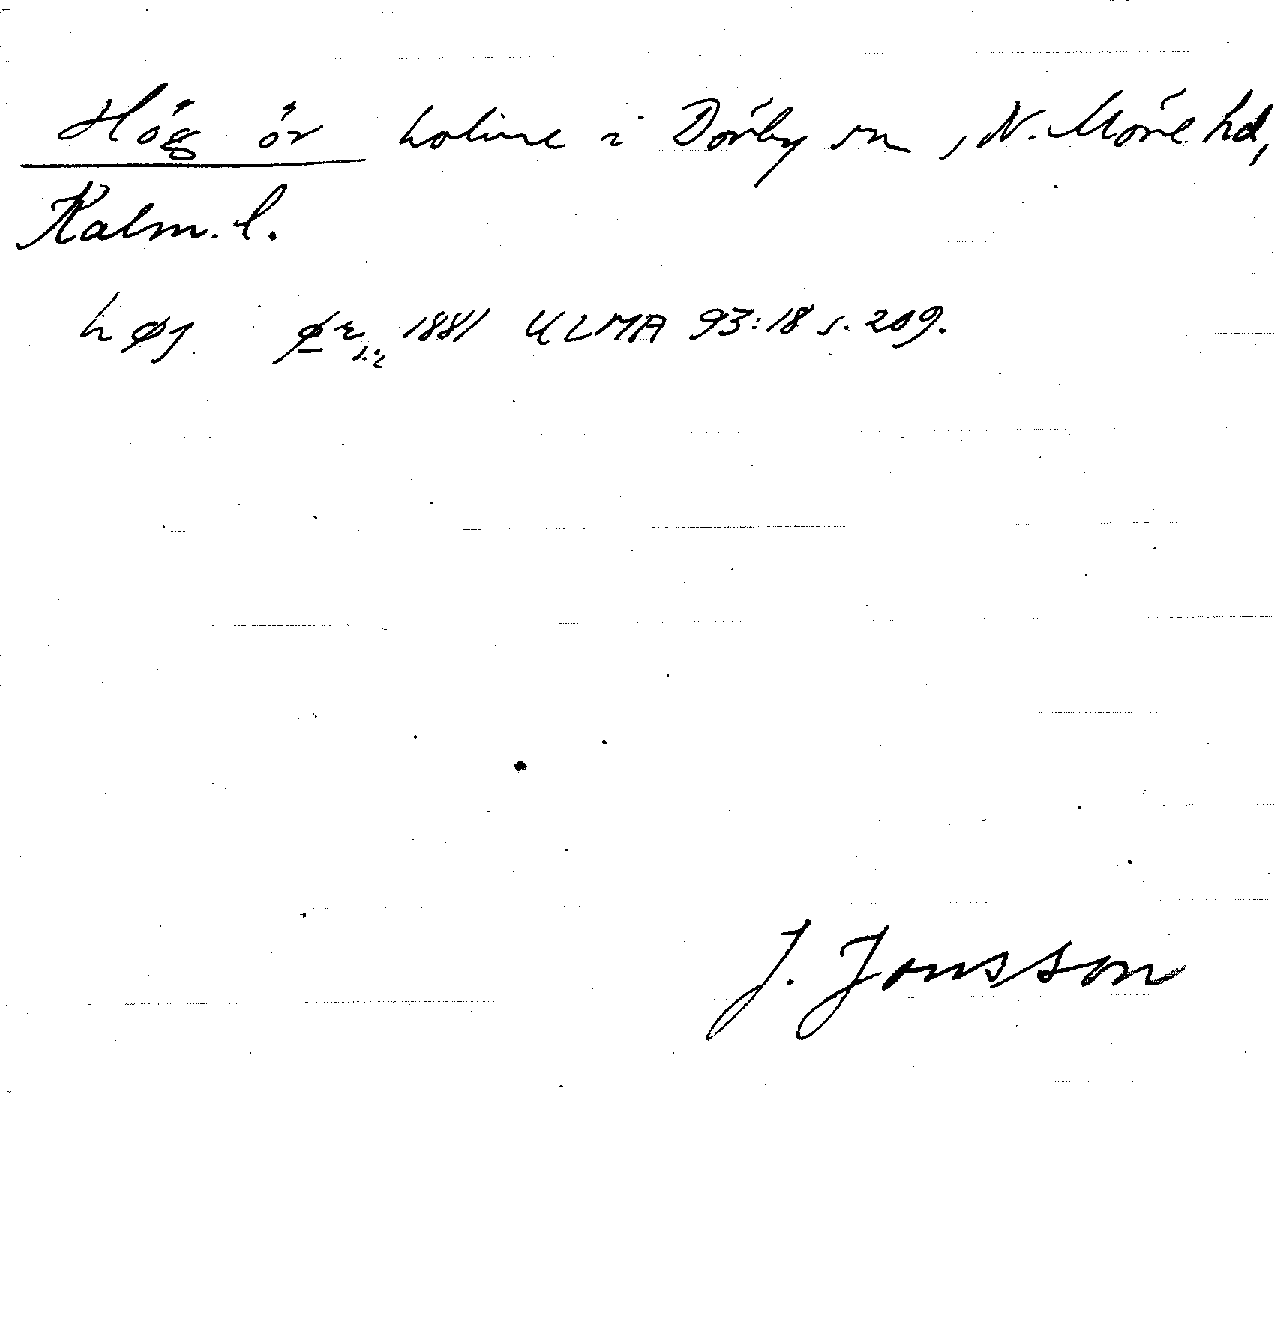 Hög ör holme i Dörby sn, N. Möre hd,
Kalm. l.
høg ør 1881 ULMA 93:18 s. 209.
J. Jonsson